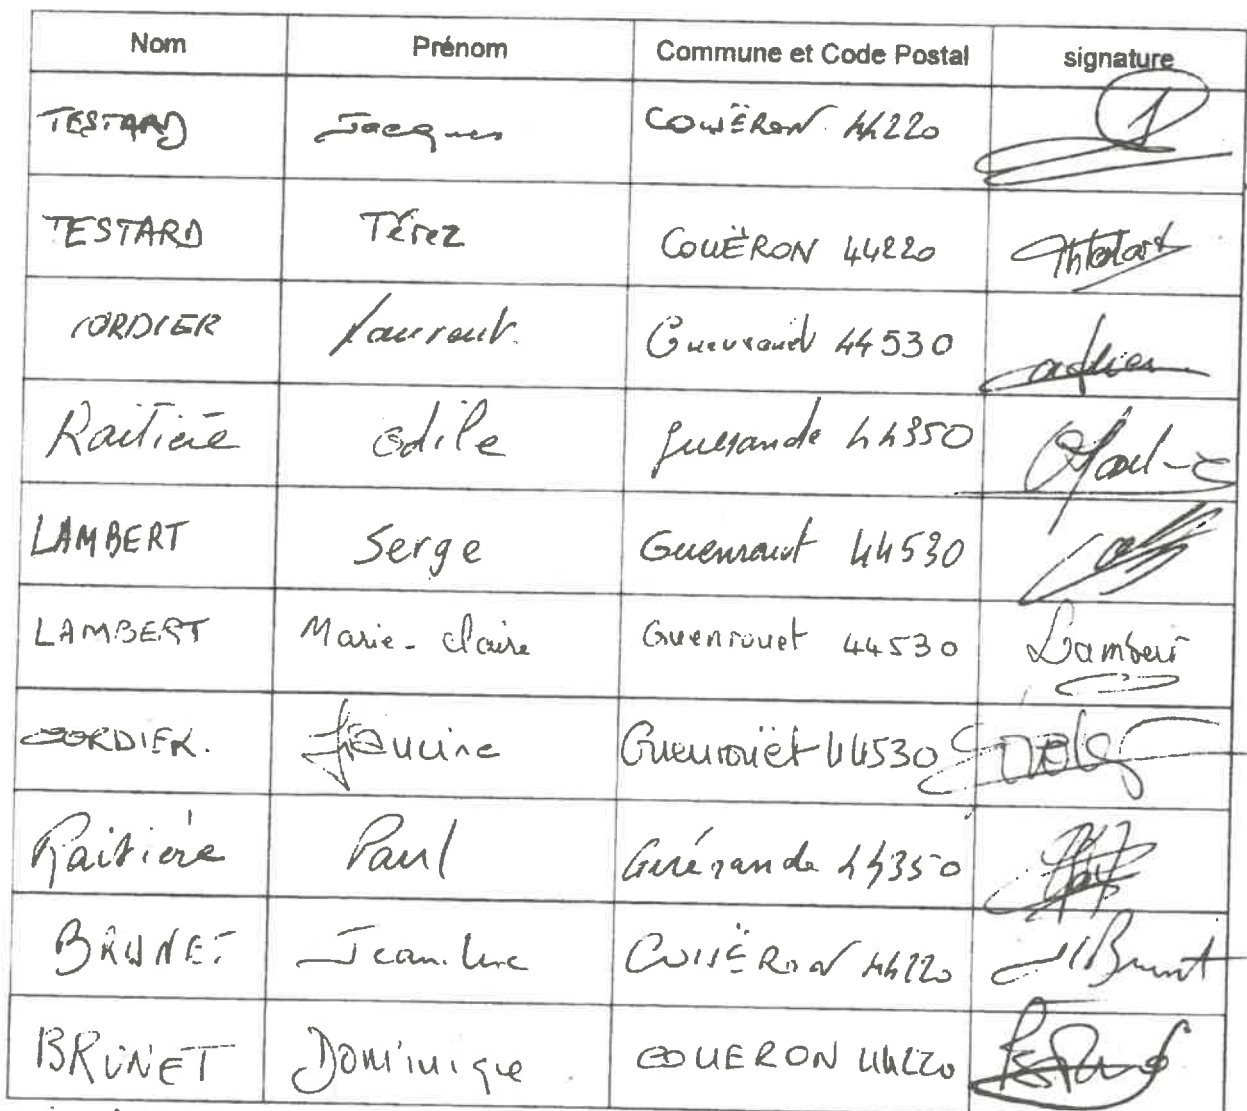 Nom Prénom Commune et Code Postal signature
TESTARD Jacques COUËRON 44220
TESTARD Térez COUËRON 44220
CORDIER Laurent Guenrouet 44530
Raitière Odile guerande 44350
LAMBERT Serge Guenrouet 44530
LAMBERT Marie-Claire Guenrouet 44530 Lambert
CORDIER. Francine Guenrouët 44530
Raitière Paul Guérande 44350
BRUNET Jean-Luc COUËRON 44220 Brunet
BRUNET Dominique COUERON 44220